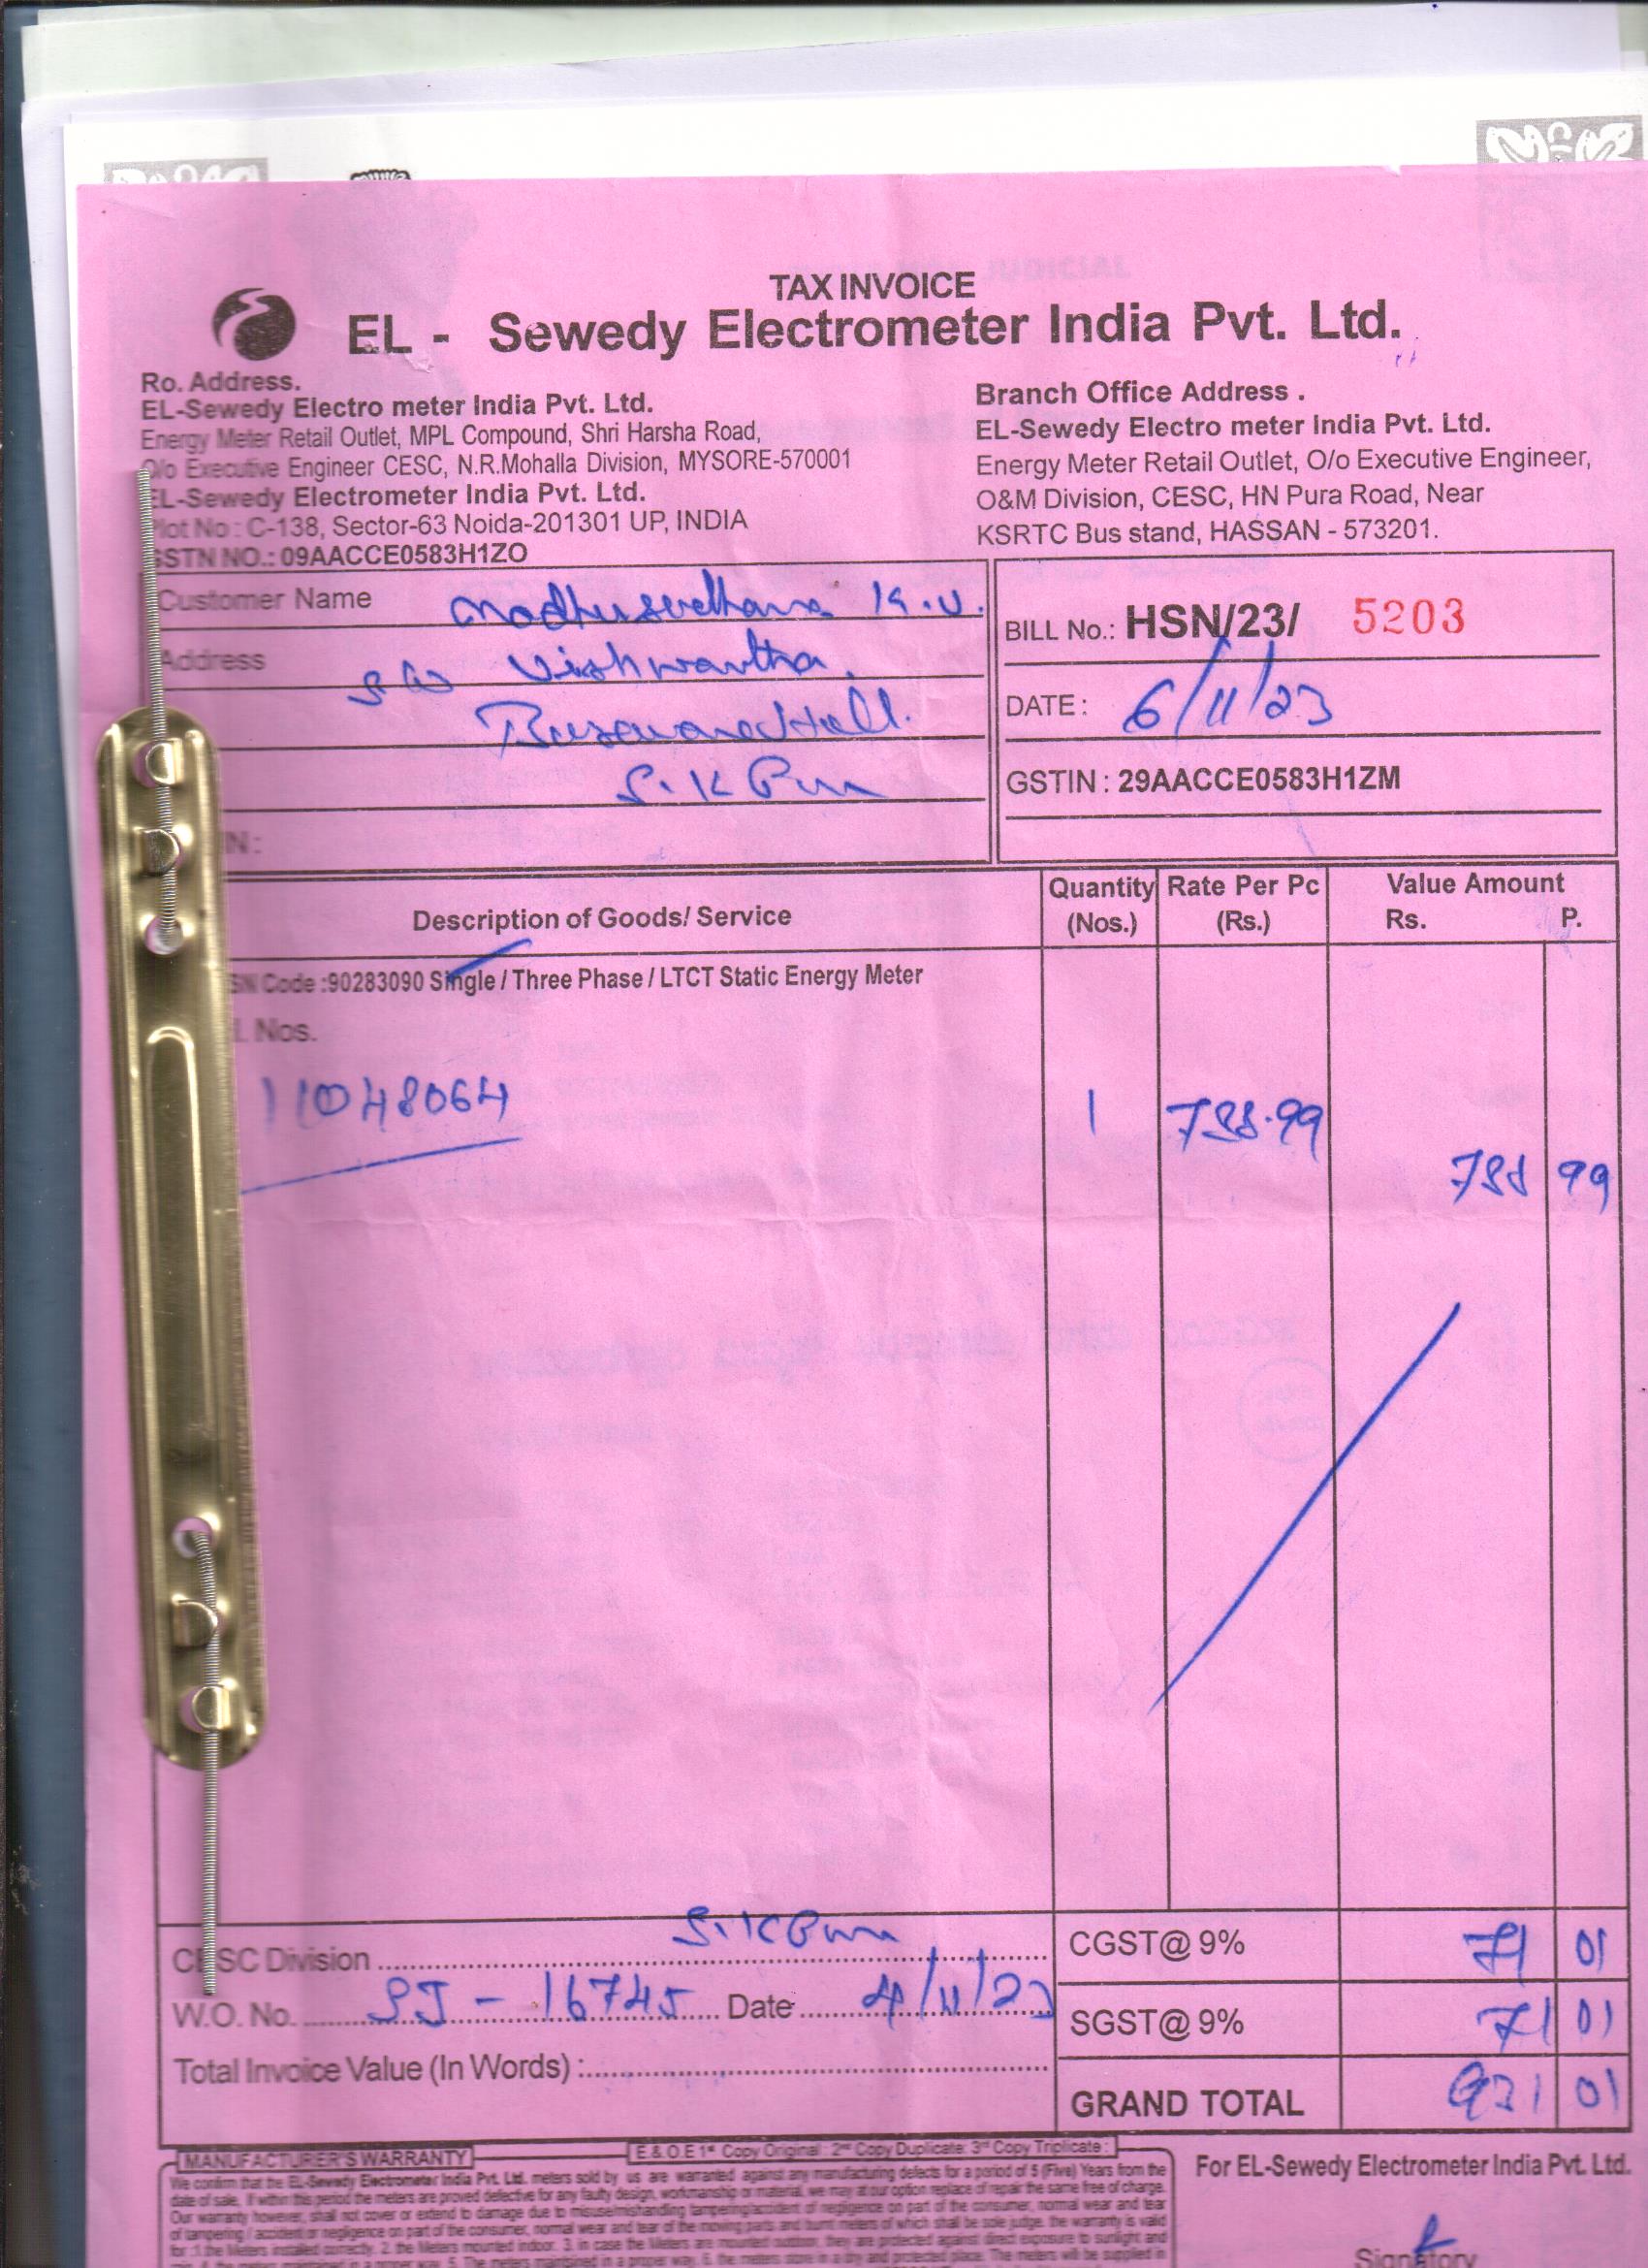 TAX INVOICE
EL - Sewedy Electrometer India Pvt. Ltd.
Ro. Address.
EL-Sewedy Electro meter India Pvt. Ltd.
Energy Meter Retail Outlet, MPL Compound, Shri Harsha Road,
O/o Executive Engineer CESC, N.R.Mohalla Division, MYSORE-570001
EL-Sewedy Electrometer India Pvt. Ltd.
Plot No : C-138, Sector-63 Noida-201301 UP, INDIA
GSTN NO.: 09AACCE0583H1ZO
Branch Office Address .
EL-Sewedy Electro meter India Pvt. Ltd.
Energy Meter Retail Outlet, O/o Executive Engineer,
O&M Division, CESC, HN Pura Road, Near
KSRTC Bus stand, HASSAN - 573201.
Customer Name K.V.
Address
S.K Pura
N :
BILL No.: HSN/23/ 5203
DATE : 6/11/23
GSTIN : 29AACCE0583H1ZM
Description of Goods/ Service
Quantity (Nos.)
Rate Per Pc (Rs.)
Value Amount
Rs. P.
SN Code :90283090 Single / Three Phase / LTCT Static Energy Meter
l. Nos.
11048064 1 788.99
788 99
CESC Division S.K Pura
W.O. No. SJ - 16745 Date 4/11/23
Total Invoice Value (In Words) :
CGST@ 9% 71 01
SGST@ 9% 71 01
GRAND TOTAL 931 01
MANUFACTURER'S WARRANTY
E & O.E 1st Copy Original : 2nd Copy Duplicate: 3rd Copy Triplicate :
We confirm that the EL-Sewedy Electrometer India Pvt. Ltd. meters sold by us are warranted against any manufacturing defects for a period of 5 (Five) Years from the
date of sale. If within this period the meters are proved defective for any faulty design, workmanship or material, we may at our option replace of repair the same free of charge.
Our warranty however, shall not cover or extend to damage due to misuse/mishandling tampering/accident of negligence on part of the consumer, normal wear and tear
of tampering / accident or negligence on part of the consumer, normal wear and tear of the moving parts and burnt meters of which shall be sole judge. the warranty is valid
for : 1. the Meters installed correctly. 2. the Meters mounted indoor. 3. in case the Meters are mounted outdoor, they are protected against direct exposure to sunlight and
For EL-Sewedy Electrometer India Pvt. Ltd.
Signatory